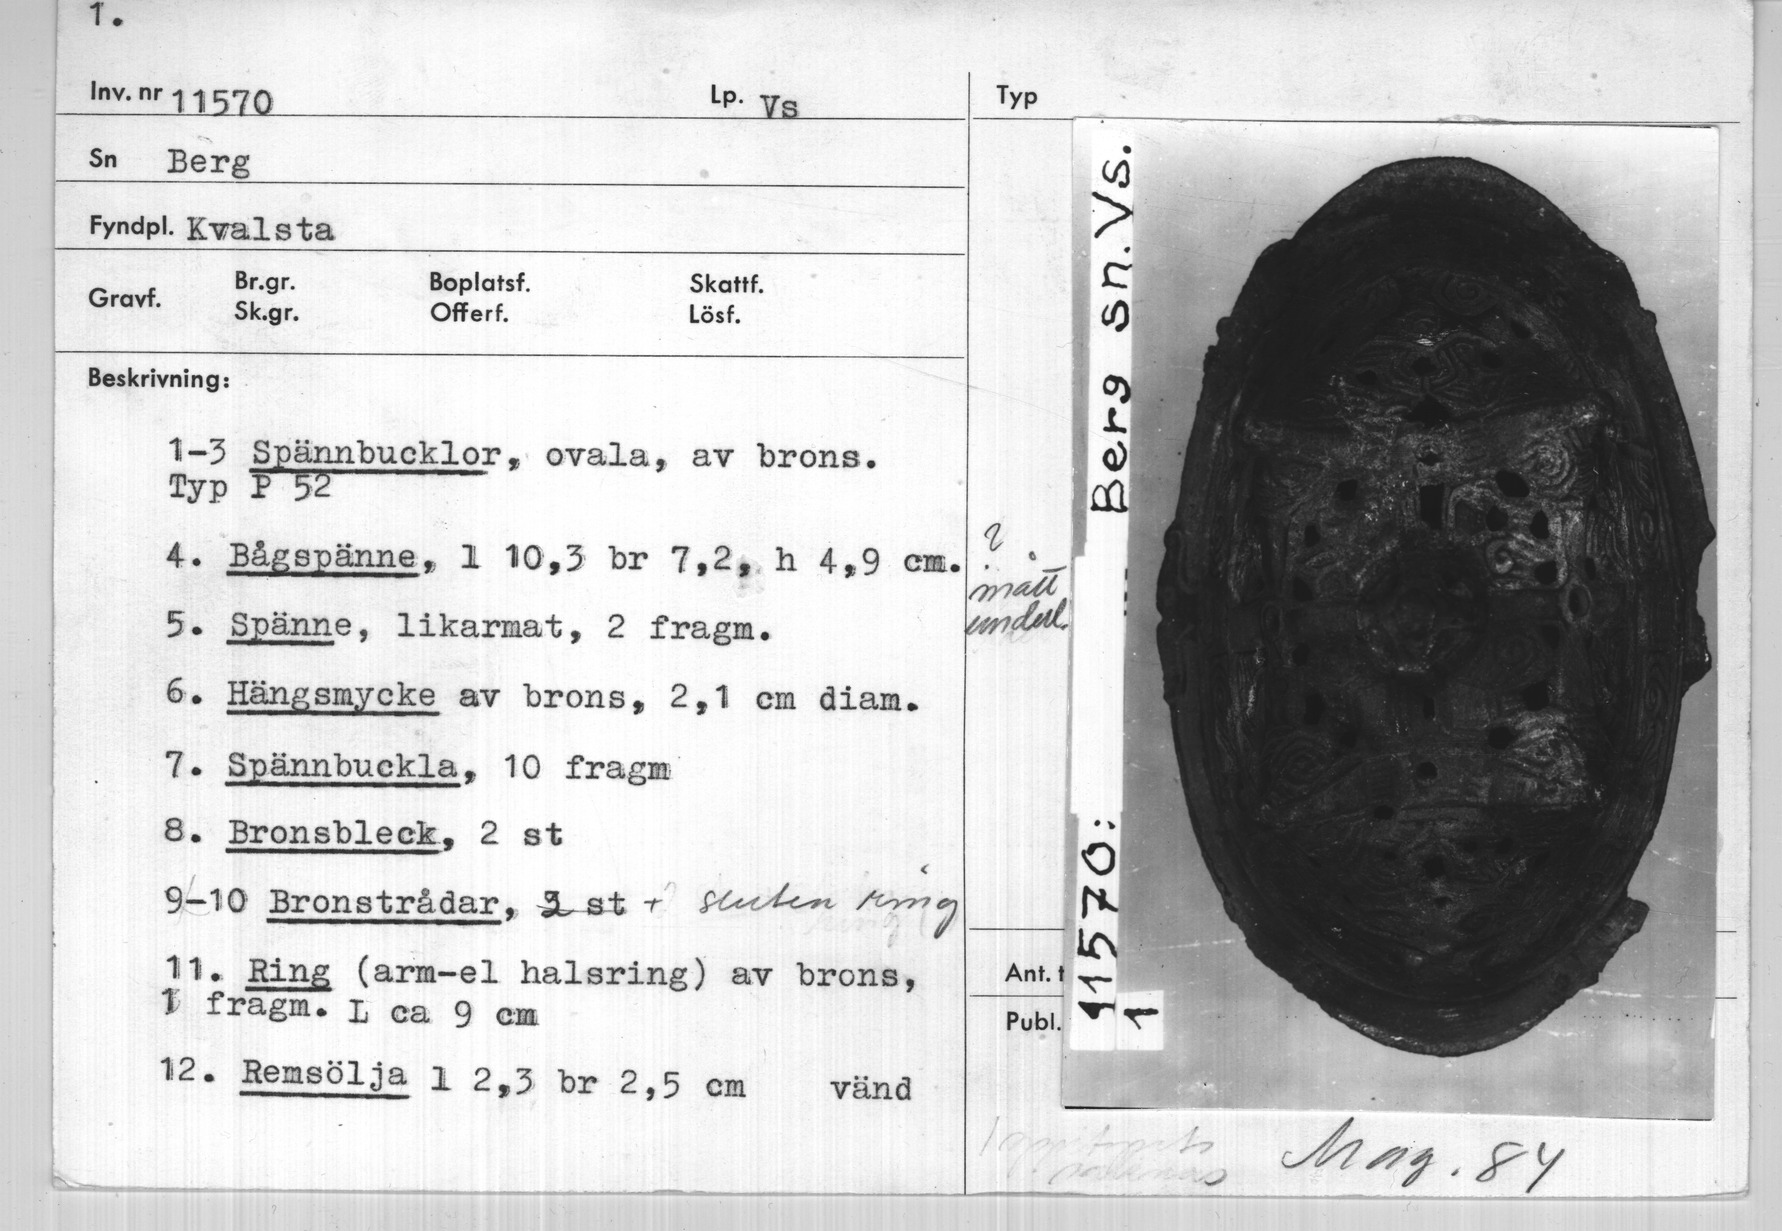 1.
Inv. nr 11570 Lp. Vs
Typ
Sn Berg
Fyndpl. Kvalsta
Gravf. Br.gr. Boplatsf. Skattf.
Sk.gr. Offerf. Lösf.
Beskrivning:
1-3 Spännbucklor, ovala, av brons.
Typ P 52
4. Bågspänne, l 10,3 br 7,2, h 4,9 cm.
?
mått
underl.
5. Spänne, likarmat, 2 fragm.
6. Hängsmycke av brons, 2,1 cm diam.
7. Spännbuckla, 10 fragm
8. Bronsbleck, 2 st
9-10 Bronstrådar, 3 st + sluten ring
11. Ring (arm-el halsring) av brons,
1 fragm. L ca 9 cm
12. Remsölja l 2,3 br 2,5 cm vänd
Ant. t
Publ.
11570: Berg sn. Vs.
1
Mag. 84